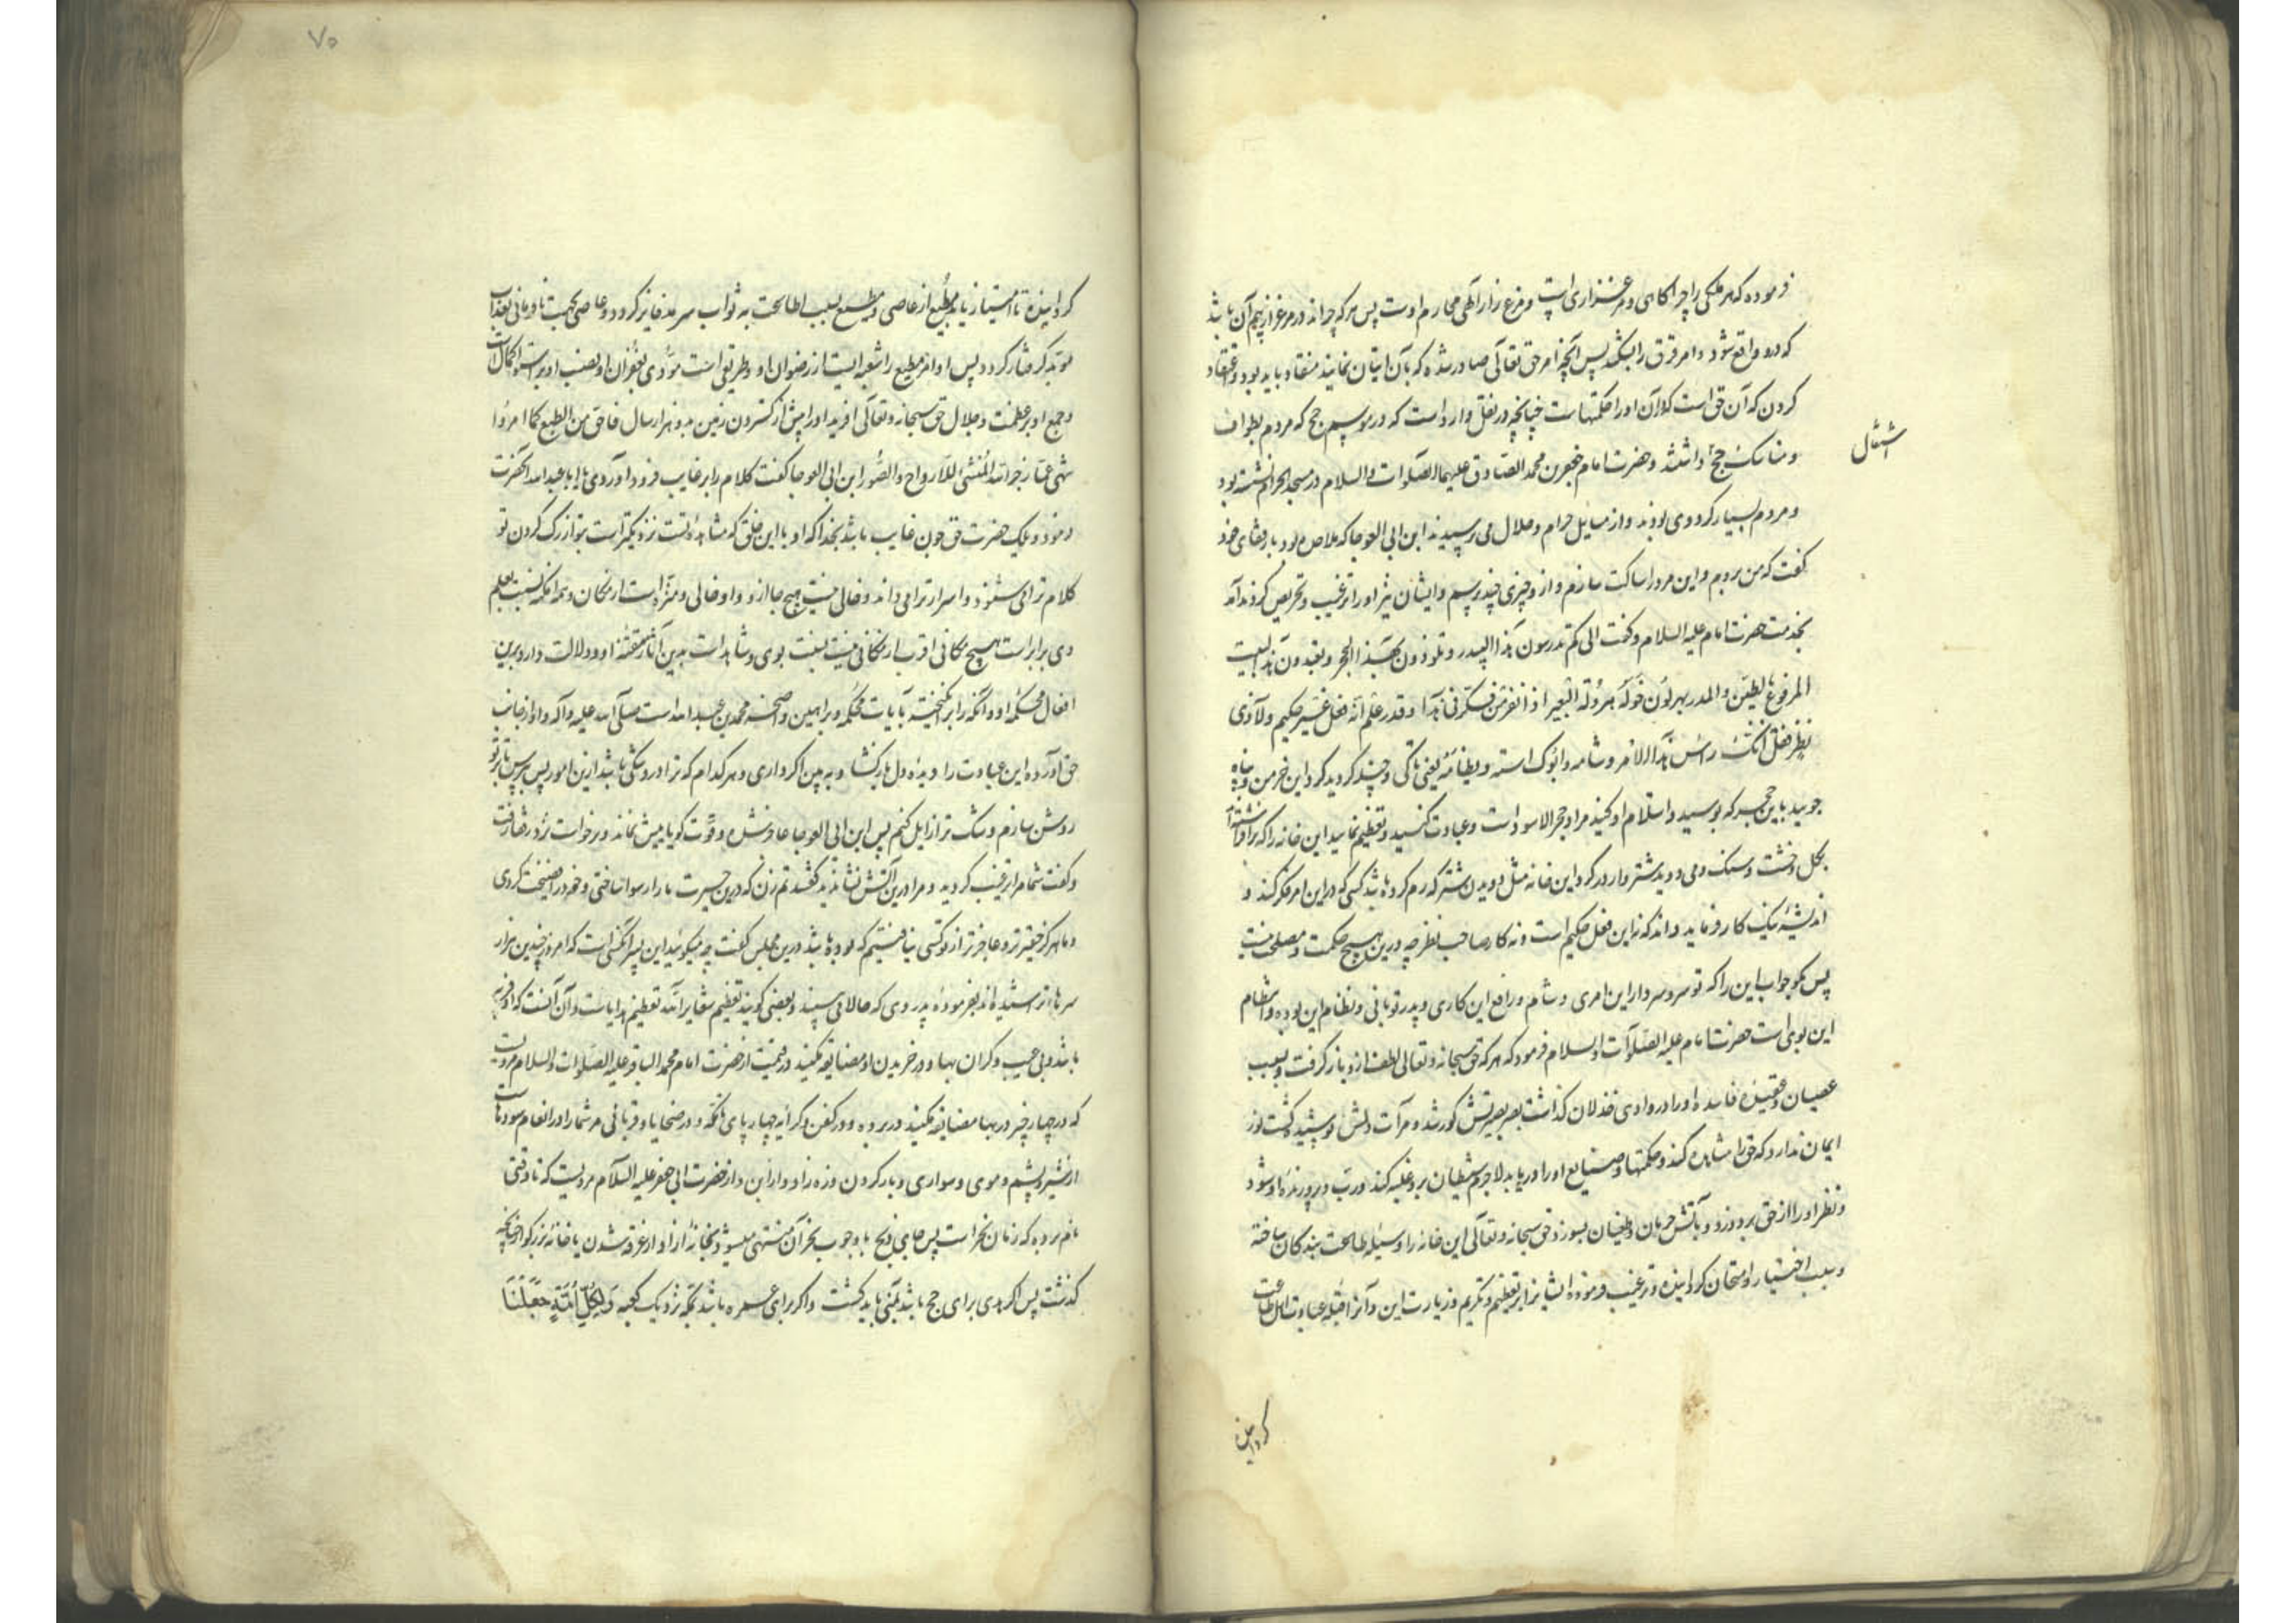 فرموده که هر ملکی را چراگاهی و مرغزاری است و مرغزار آلهی محارم اوست پس هر که چراند در مرغزار بیم آن باشد
که درو واقع شود و امر قرق را بشکند پس آنچه امر حق تعالی صادر شده که بآن اتیان نمایند منقاد باید بود و اعتقاد
کردن که آن حق است که در آن او را حکمتهاست چنانچه در نقل وارد است که در موسم حج که مردم بطواف
و مناسک حج داشتند و حضرت امام جعفر بن محمد الصادق علیهما الصلوات و السلام در مسجد الحرام نشسته بود
اشتغال
و مردم بسیار گرد وی بودند و از مسایل حرام و حلال می پرسیدند ابن ابی العوجا که ملاحده بود با رفقای خود
گفت که من بروم و این مرد را ساکت سازم و ازو چیزی چند پرسم و ایشان نیز او را ترغیب و تحریص کردند آمد
بخدمت حضرت امام علیه السلام و گفت الی کم تدرسون هذا البیدر و تلوذون بهذا الحجر و تعبدون هذا البیت
المرفوع بالطین و المدر و تهرولون حوله هرولة البعیر اذا نفر من فکر فی هذا و قدر علم انه فعل غیر حکیم و لا ذی
نظر فقل فانک راس هذا الامر و سنامه و ابوک اسه و نظامه یعنی تا کی و چند گردید گرد این خرمن و پناه
جویید باین حجر که بوسید و استلام او کنید مراد حجر الاسود است و عبادت کنید و تعظیم نمایید این خانه را که برافراشته‌اند
بگل و خشت و سنگ و می دوید شتروار در گرد این خانه مثل دویدن شتر که رم کرده باشد کسی که در این امر فکر کند و
اندیشهٔ نیک کار فرماید داند که نه این فعل حکیم است و نه کار صاحب نظر چه درین هیچ حکمت و مصلحت نیست
پس بگو جواب این را که تو سر و سردار این امری و سنام و رافع این کاری و پدر تو بانی و نظام این بوده و انتظام
این بوی است حضرت امام علیه الصلوات و السلام فرمود که هر که حق سبحانه و تعالی لطف ازو باز گرفت و بسبب
عصیان و عقیدهٔ فاسده او را در وادی خذلان گذاشت بصر بصیرتش کور شد و مرآت دلش پوشیده گشت نور
ایمان ندارد که حق را مشاهده کند و حکمتها و صنایع او را دریابد لاجرم شیطان برو غلبه کند و رب و پرورنده او شود
و نظر او را از حق بردوزد و بآتش حرمان و طغیان بسوزد حق سبحانه و تعالی این خانه را وسیله طاعت بندگان ساخته
و سبب اختیار و امتحان گردانیده و ترغیب فرموده ایشانرا بر تعظیم و تکریم و زیارت این و آنرا قبله عبادت اهل طاعت
گردانیده
۷۰
گردانیده تا امتیاز یابد مطیع از عاصی و مطیع بسبب اطاعت به ثواب سرمد فایز گردد و عاصی بجهت نافرمانی بعذاب
موبد گرفتار گردد پس اوامر مطیع را شعبه ایست از رضوان او و طریقی است مؤدی بغفران او نصب او بر استوا کمال است
و جمع او بر عظمت و جلال حق سبحانه و تعالی افریده او را پیش از گستردن زمین بدو هزار سال فاحق من اطیع کما امروا
نهی عما زجر الله المنشئ للارواح و الصور ابن ابی العوجا گفت کلام را بر غایب فرود آوردی یا ابا عبدالله آنحضرت
فرمود ویلک حضرت حق چون غایب باشد بخدا که او با این خلق که مشاهدهٔ تست نزدیکتر است بتو از رگ گردن تو
کلام ترا می شنود و اسرار ترا می داند و خالی نیست هیچ جا ازو و او خالی و منزه است از مکان و همه امکنه نسبت بعلم
وی برابر است هیچ مکانی اقرب از مکانی نیست نسبت بوی و شاهد است بدین آثار متقنه او و دلالت دارد برین
افعال محکمه او و آنکه را برانگیخته بآیات محکمه و براهین واضحه محمد بن عبدالله است صلی الله علیه و آله و او از جانب
حق آورده این عبادت را دیدهٔ دل باز گشا و ببین اگر داری و هر کدام که ترا درو شکی باشد ازین امور بپرس تا بر تو
روشن سازم و شک ترا زایل کنم پس ابن ابی العوجا خاموش شد و قوت گویاییش نماند و برخواست نزد رفقا رفت
و گفت شما مرا ترغیب کردید و مرا درین آتش نشاندید گفتند دم مزن که درین حیرت ما را رسوا ساختی و خود را فضیحت کردی
و ما هرگز حقیرتر و عاجزتر از تو کسی نیافتیم که بوده باشد درین مجلس گفت چه میگوئید این پسر آنکسی است که امروز چندین هزار
سرها تراشیده‌اند بفرمودهٔ پدر وی که حالا می بینید و بعضی گویند تعظیم شعایر الله تعظیم هدایاست و آن آنست که او فربه
باشد و بی عیب و گران بها و در خریدن او مضایقه نکنید در قیمت از حضرت امام محمد الباقر علیه الصلوات و السلام مرویست
که در چهار چیز در بها مضایقه نکنید در برده و در کفن و کرایه چهارپای تا مکه و در ضحایا و قربانی مر شما را در انعام سودهاست
از شیر و پشم و موی و سواری و بار کردن و زه زاد و از ابن و از حضرت ابی جعفر علیه السلام مرویست که تا وقتی
نام برده که زمان نحر است پس جای ذبح یا وجوب نحر آن منتهی میشود بخانهٔ آزاد از غرقه شدن یا خانه بزرگوار چنانچه
گذشت پس اگر هدی برای حج باشد بمنی باید کشت و اگر برای عمره باشد بمکه نزدیک کعبه وَلِكُلِّ أُمَّةٍ جَعَلْنَا